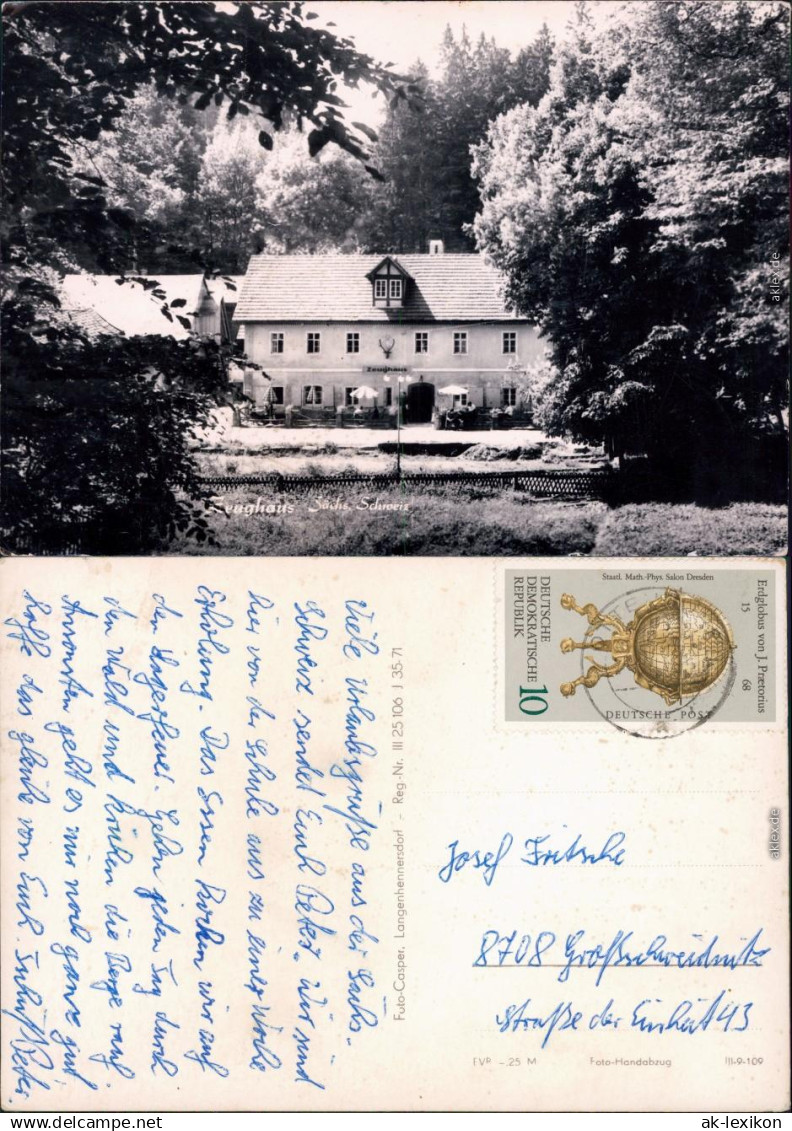 Zeughaus
Zeughaus Sächs. Schweiz
aklex.de
Viele Urlaubsgrüße aus der Sächs.
Schweiz sendet Euch Peter. Wir sind
hier von der Schule aus zu einer Woche
Erholung. Das Essen kochen wir auf
dem Lagerfeuer. Gehen jeden Tag durch
den Wald und die Berge rauf
Ansonsten geht es mir noch ganz gut
hoffe das gleiche von Euch.
Foto-Casper, Langenhennersdorf - Reg.-Nr. III 25 106 J 35-71
Staatl. Math.-Phys. Salon Dresden
DEUTSCHE
DEMOKRATISCHE
REPUBLIK
10
Erdglobus von J. Prætorius
15 68
DEUTSCHE POST
Josef Fritsche
8708 Großschweidnitz
Straße der Einheit 43
EVP -,25 M Foto-Handabzug III-9-109
aklex.de
www.delcampe.net
ak-lexikon